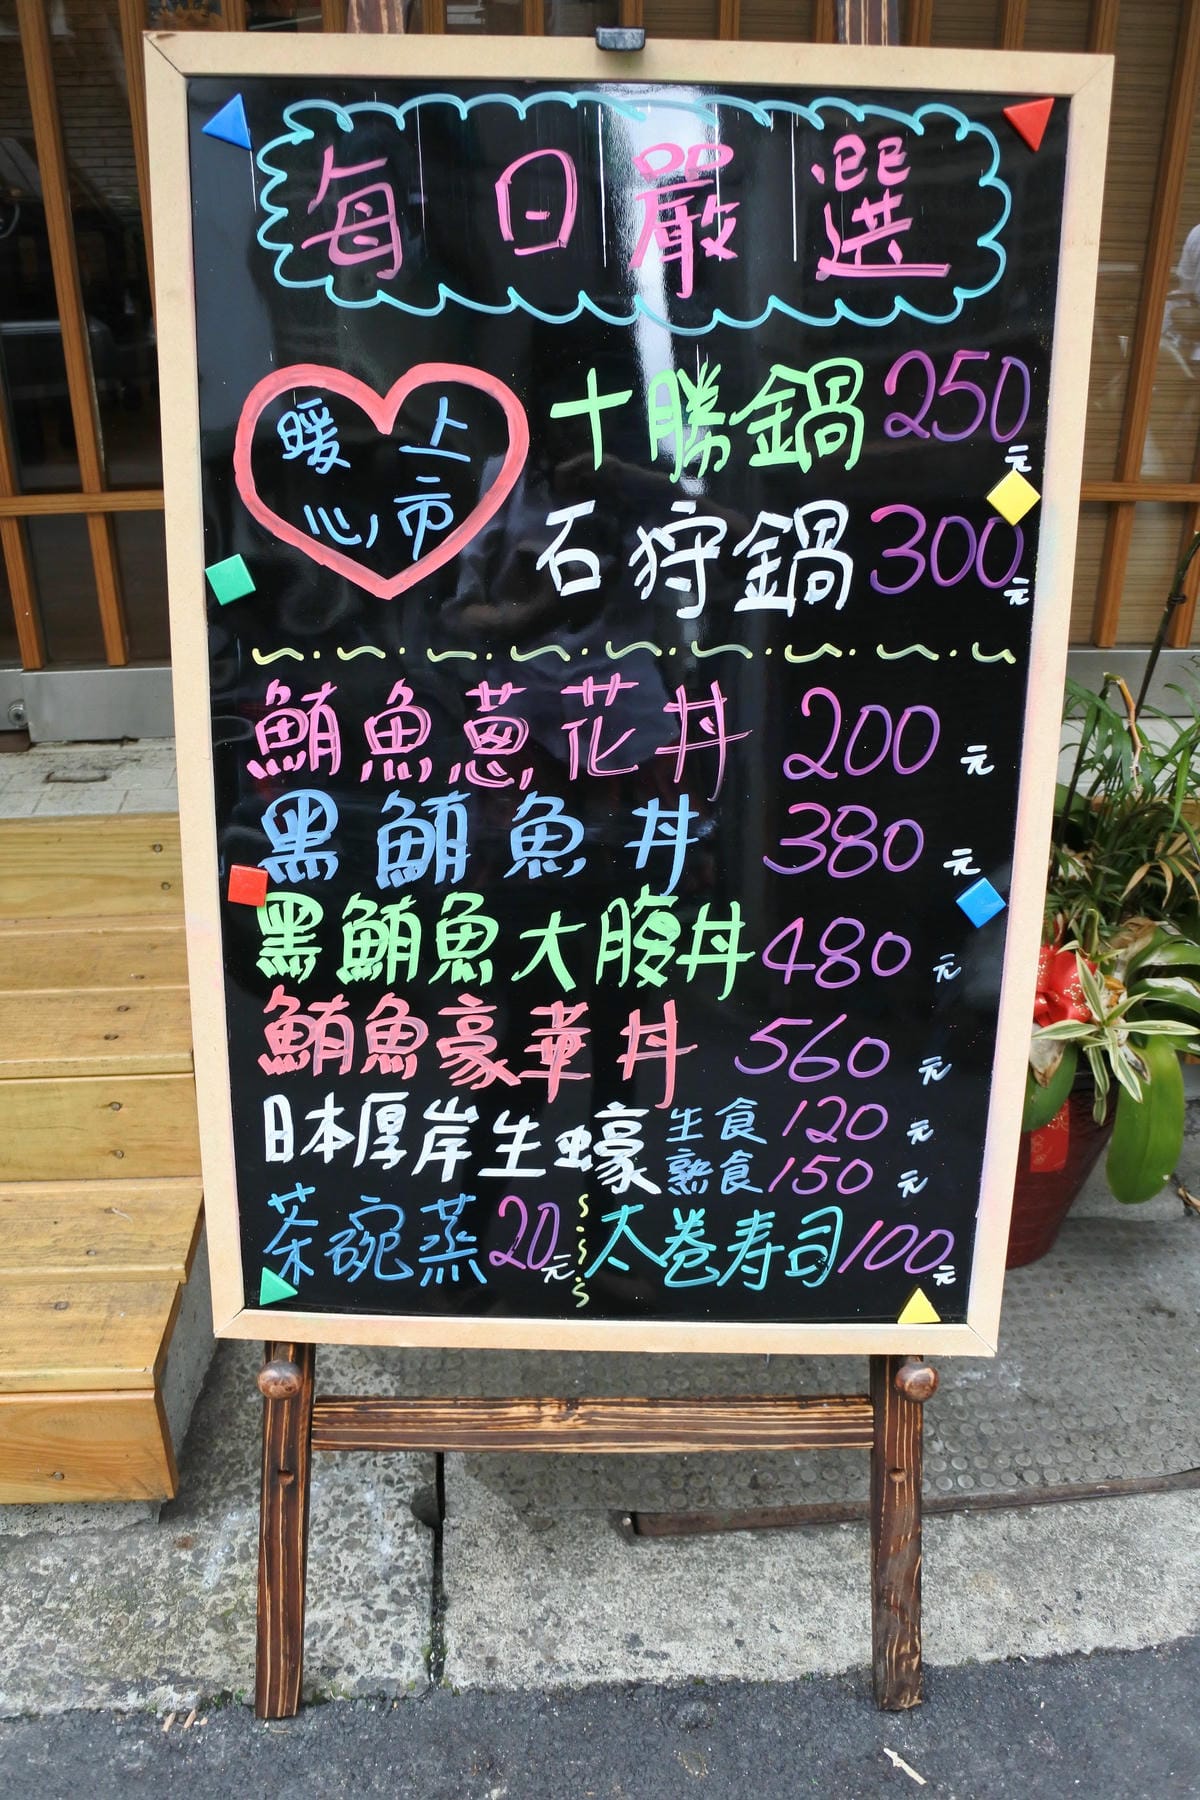 每日嚴選
暖心
上市
十勝鍋 250元
石狩鍋 300元
鮪魚蔥花丼 200元
黑鮪魚丼 380元
黑鮪魚大腹丼 480元
鮪魚豪華丼 560元
日本厚岸生蠔 生食 120元
熟食 150元
茶碗蒸 20元 太卷寿司 100元